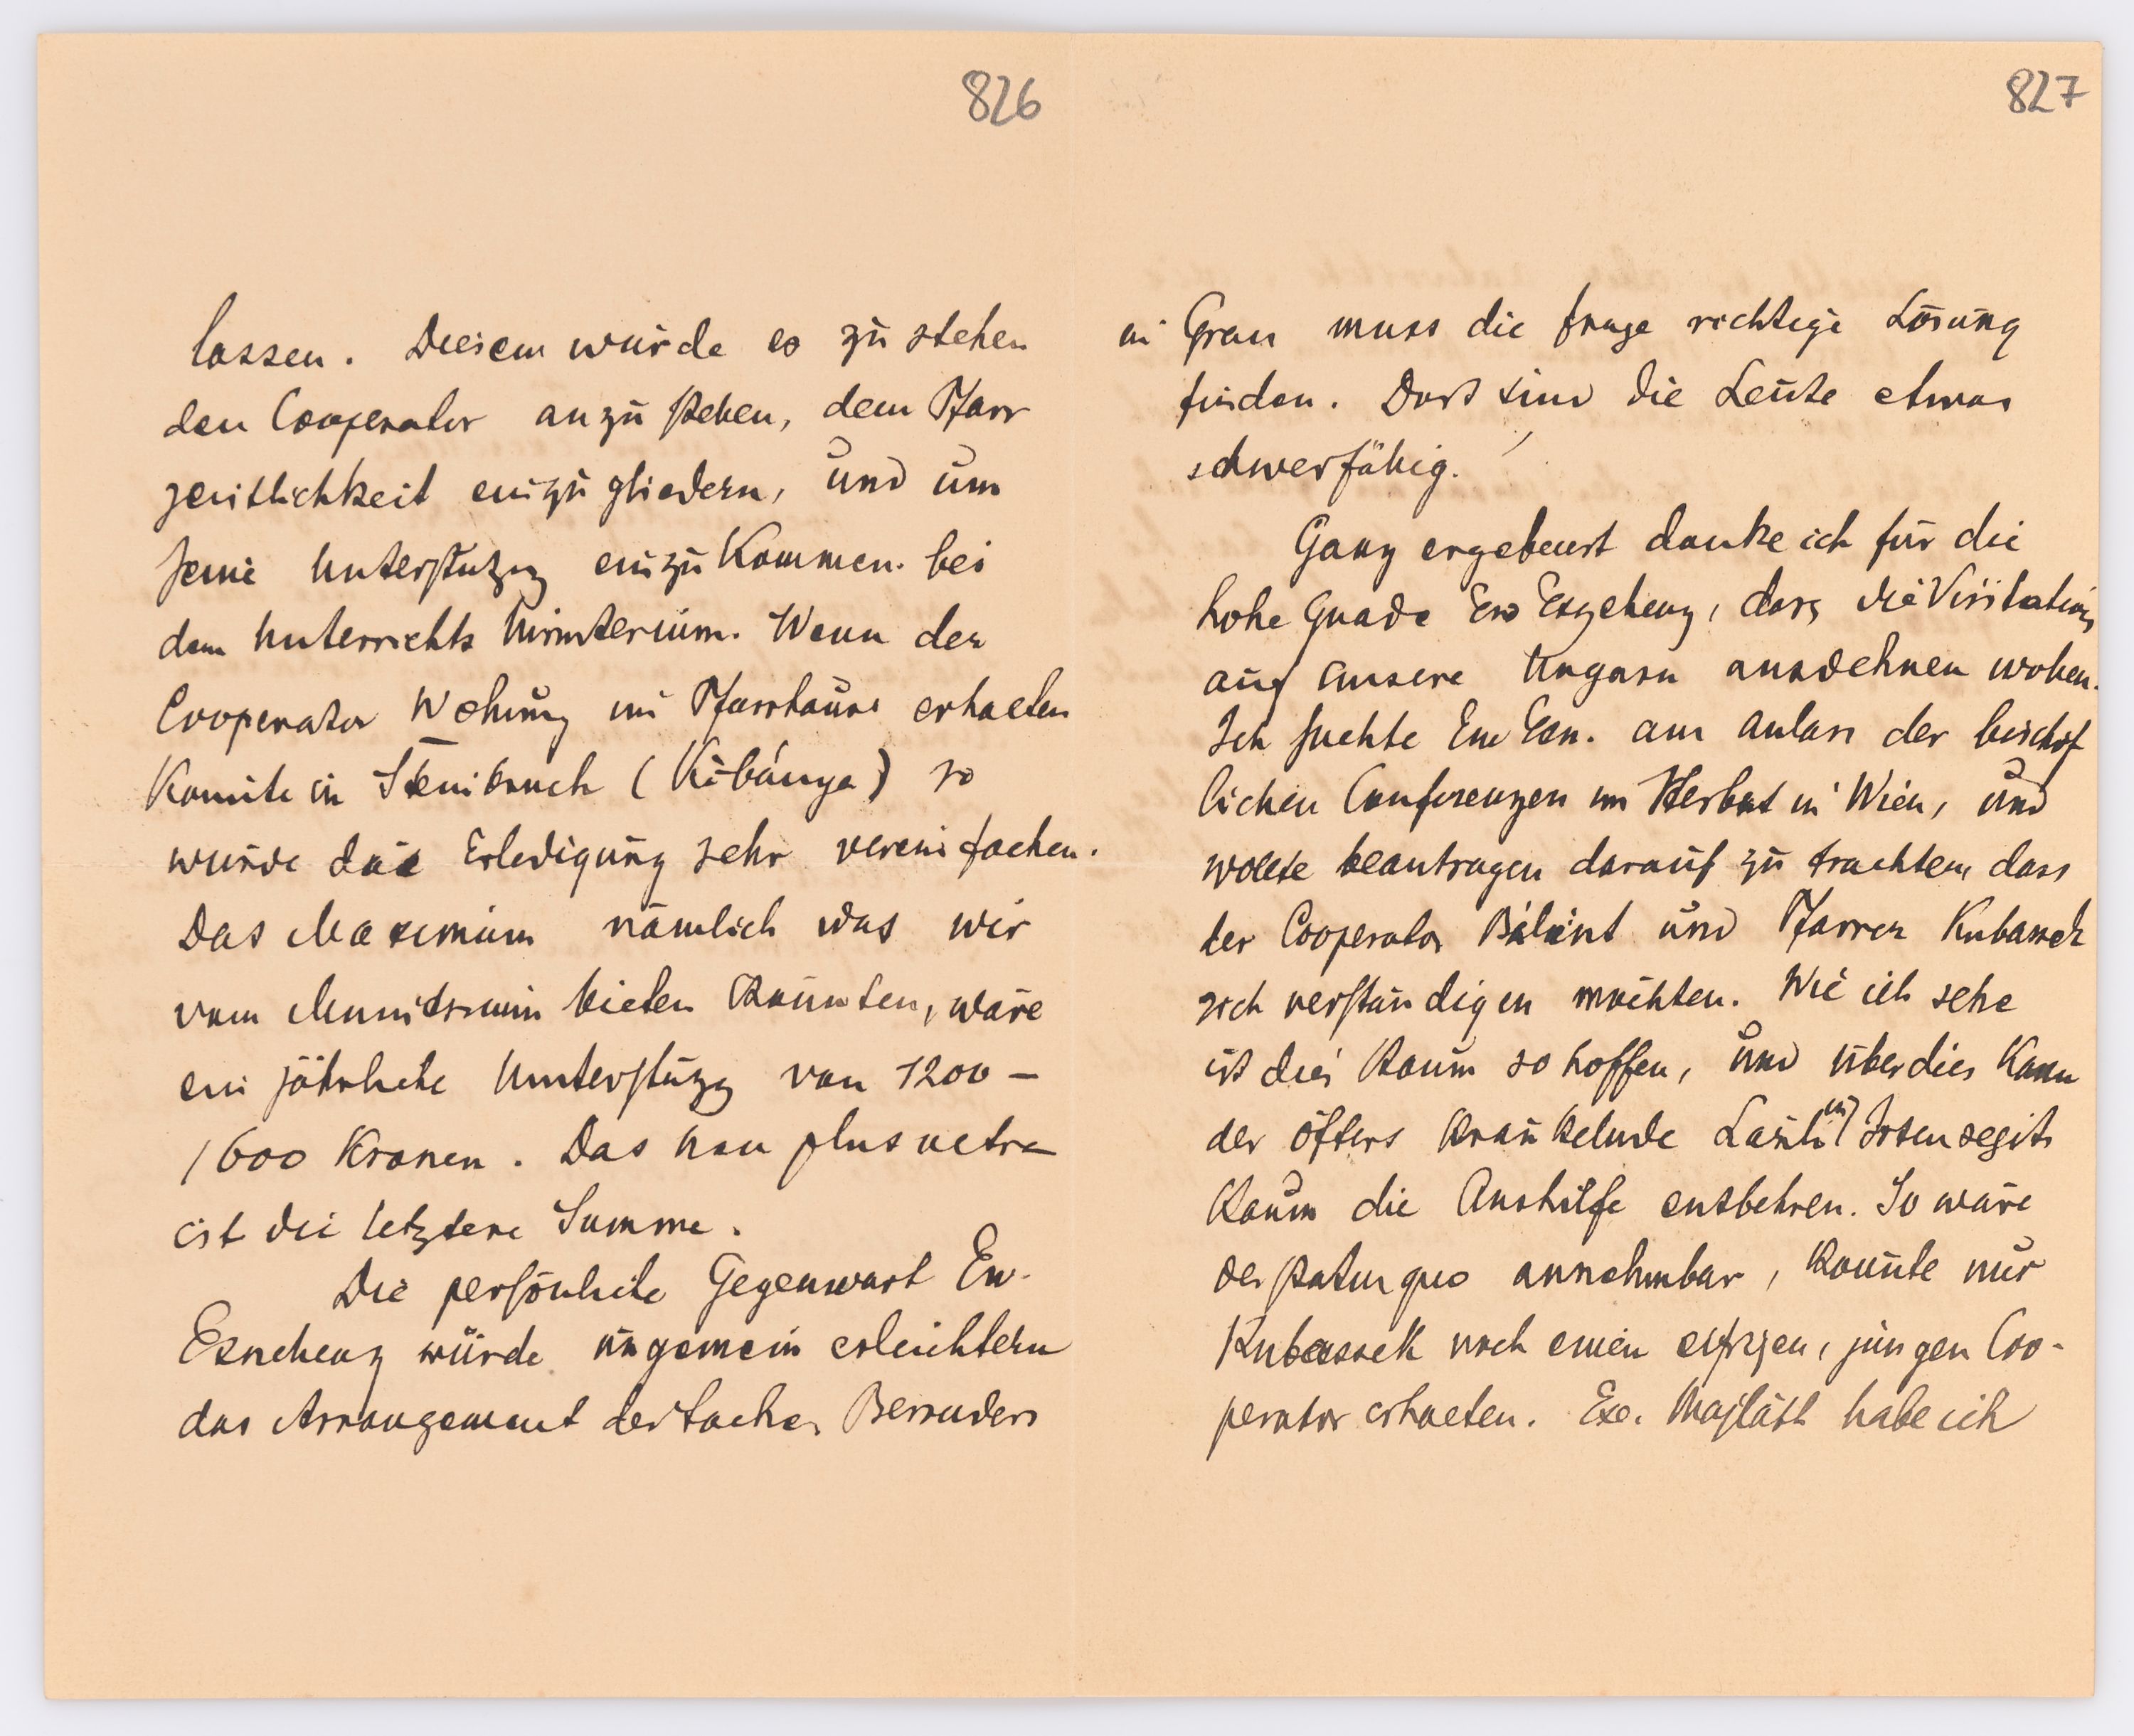 826
lassen. Diesem würde es zu stehen
den Cooperator anzustehen, dem Pfarr
geistlichkeit einzugliedern, und um
seine Unterstützg einzukommen bei
dem Unterrichts Ministerium. Wenn der
Cooperator Wohnung im Pfarrhause erhalten
könnte in Steinbruch (Kőbánya) so
würde das Erledigung sehr vereinfachen.
Das Maximum nämlich was wir
vom Ministerium bieten könnten, wäre
ein jährliche Unterstützg von 1200 –
1600 Kronen. Das non plus ultra
ist die letztere Summe.
Die persönliche Gegenwart Ew.
Exzellenz würde ungemein erleichtern
das Arrangement der Sache. Besonders
827
in Gran muss die Frage richtige Lösung
finden. Dort sind die Leute etwas
schwerfällig.
Ganz ergebenst danke ich für die
hohe Gnade Ew Exzellenz, dass die Visitation
auf unsere Ungarn ausdehnen wollen.
Ich suchte Ew Exc. am Anlass der bischöf
lichen Conferenzen im Herbst in Wien, und
wollte beantragen darauf zu trachten, dass
der Cooperator Bálint und Pfarrer Kubassek
sich verständigen möchten. Wie ich sehe
ist dies kaum so hoffen, und überdies kann
der öfters kränkelnde László in
kaum die Aushilfe entbehren. So wäre
der status quo annehmbar, könnte nur
Kubassek noch einen eifrigen, jungen Coo-
perator erhalten. Exc. Majláth habe ich